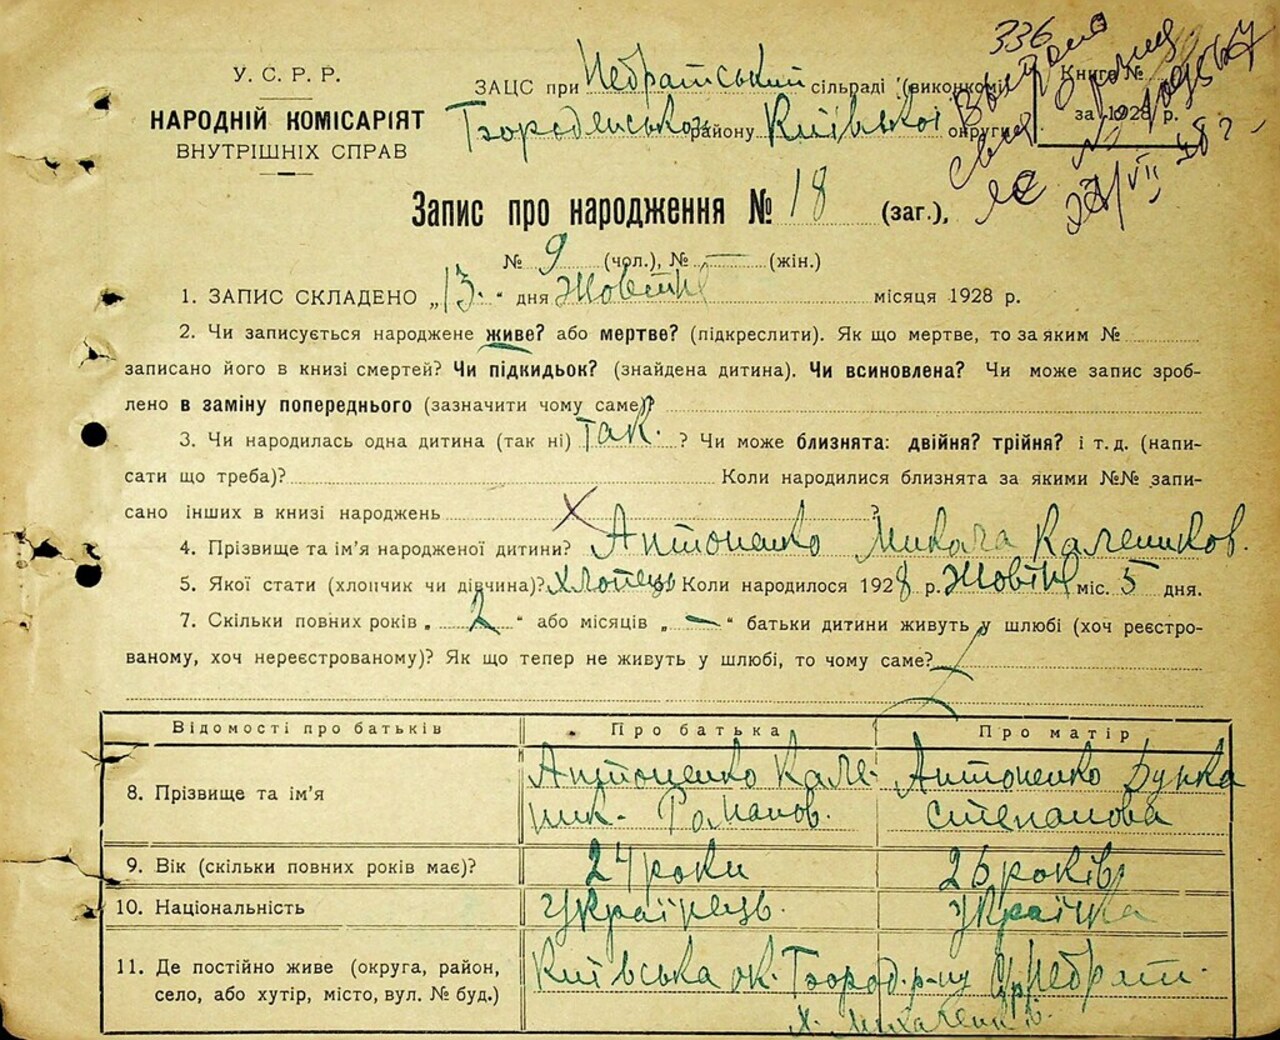 336
У. С. Р. Р.
НАРОДНІЙ КОМІСАРІЯТ
ВНУТРІШНІХ СПРАВ
ЗАЦС при Небратський сільраді (виконкомі)
району Київської округи
Книга №
за 1928 р.
Запис про народження № 18 (заг.),
№ 9 (чол.), № — (жін.)
1. ЗАПИС СКЛАДЕНО „13.“ дня Жовтня місяця 1928 р.
2. Чи записується народжене живе? або мертве? (підкреслити). Як що мертве, то за яким №
записано його в книзі смертей? Чи підкидьок? (знайдена дитина). Чи всиновлена? Чи може запис зроб-
лено в заміну попереднього (зазначити чому саме)?
3. Чи народилась одна дитина (так ні) так. ? Чи може близнята: двійня? трійня? і т. д. (напи-
сати що треба)? Коли народилися близнята за якими №№ запи-
сано інших в книзі народжень ?
4. Прізвище та ім’я народженої дитини? Антоненко Микола Калеников.
5. Якої стати (хлопчик чи дівчина)? хлопець Коли народилося 1928 р. Жовтня міс. 5 дня.
7. Скільки повних років „ 2 “ або місяців „ — “ батьки дитини живуть у шлюбі (хоч реєстро-
ваному, хоч нереєстрованому)? Як що тепер не живуть у шлюбі, то чому саме?
Відомості про батьків Про батька Про матір
8. Прізвище та ім’я Антоненко Кале- Антоненко Дунка
ник. Романов. Степанова
9. Вік (скільки повних років має)? 24 роки 26 років
10. Національність Українець. Українка
11. Де постійно живе (округа, район, Київська ок. Бород. р-ну Небрат.
село, або хутір, місто, вул. № буд.) х. Михаленків.